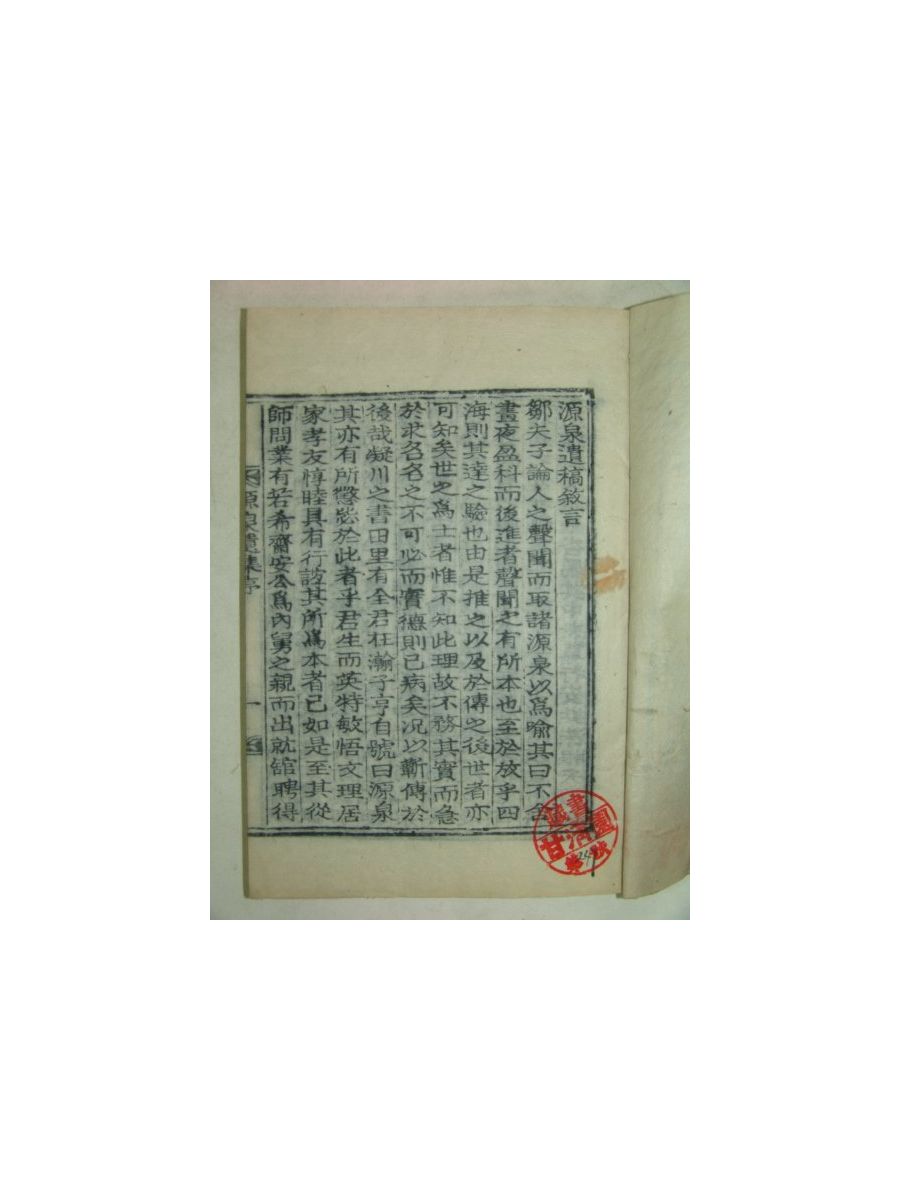 源泉遺稿敘言
鄒夫子論人之聲聞而取諸源泉以爲喩其曰不舍
晝夜盈科而後進者聲聞之有所本也至於放乎四
海則其達之驗也由是推之以及於傳之後世者亦
可知矣世之爲士者惟不知此理故不務其實而急
於求名名之不可必而實德則已病矣况以蘄傳於
後哉凝川之書田里有全君在瀚子亨自號曰源泉
其亦有所懲毖於此者乎君生而英特敏悟文理居
家孝友惇睦具有行誼其所爲本者已如是至其從
師問業有若希齋安公爲內舅之親而出就舘聘得
源泉遺集序
一
藏書
甘 園